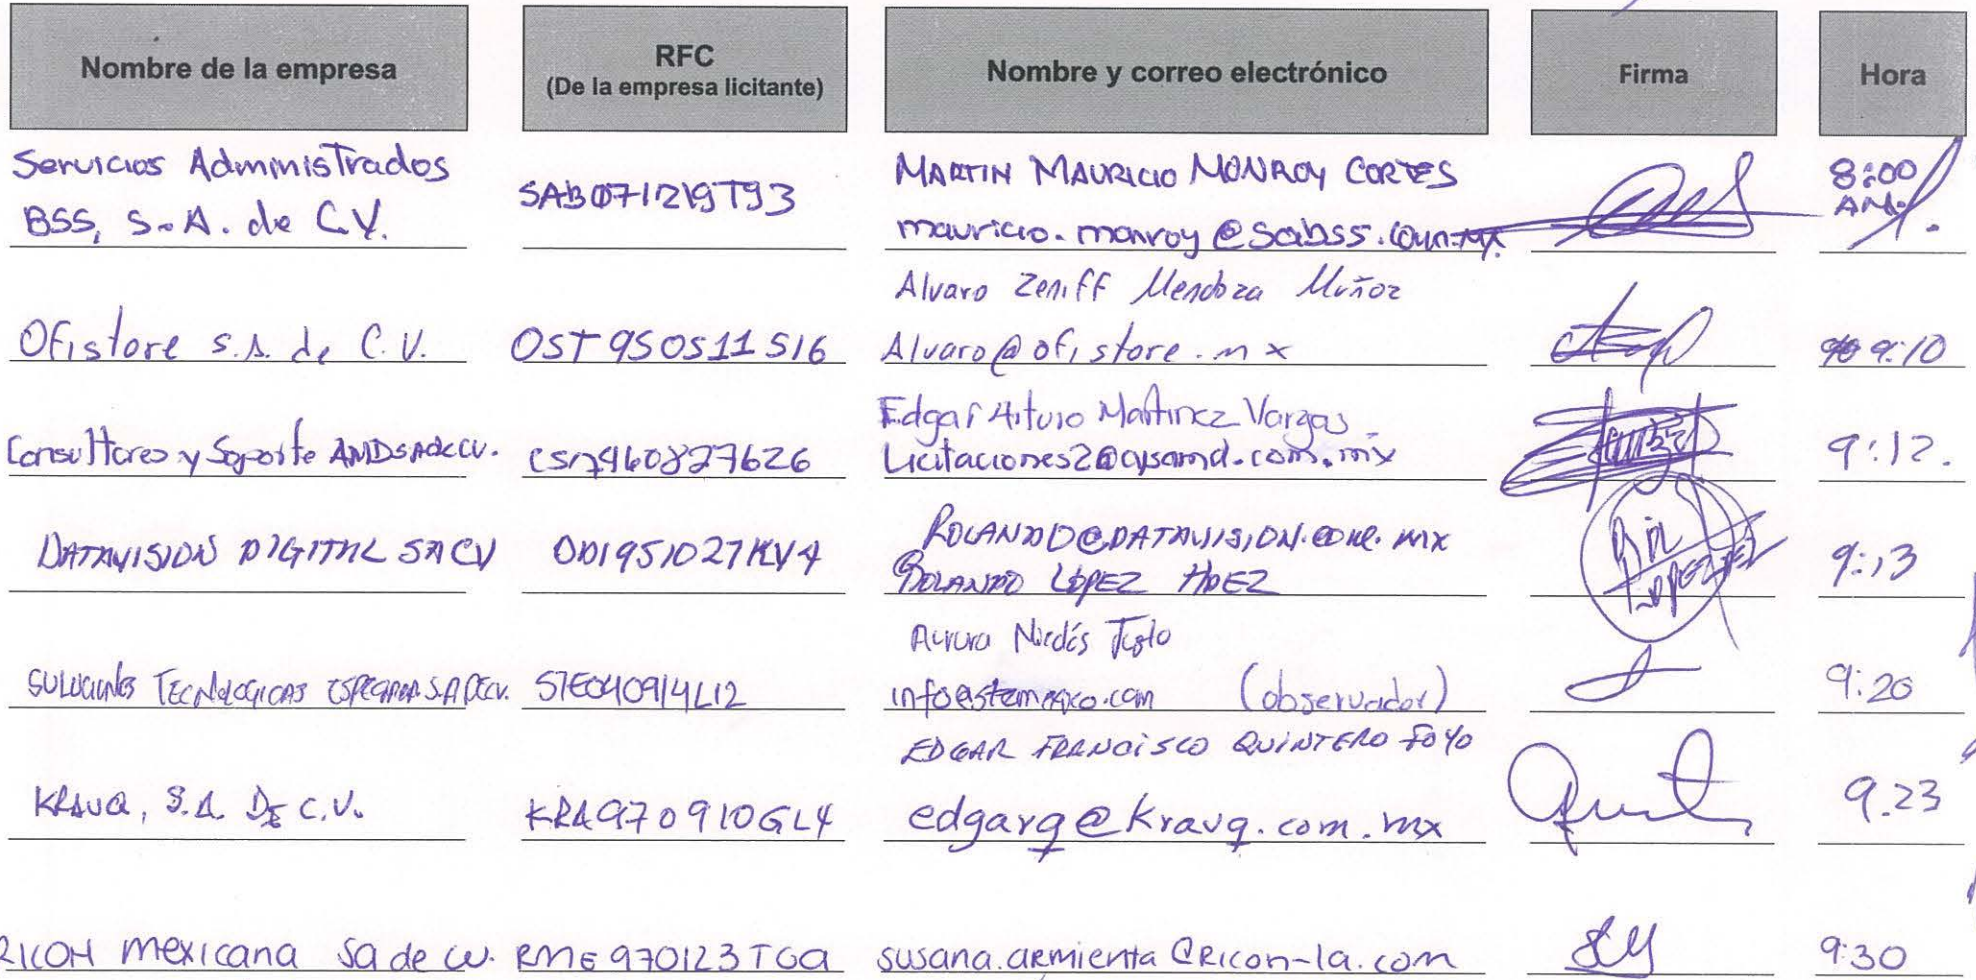 Nombre de la empresa
RFC
(De la empresa licitante)
Nombre y correo electrónico
Firma
Hora
Servicios Administrados
BSS, S.A. de C.V.
SAB071219T93
MARTIN MAURICIO MONROY CORTES
mauricio.monroy@sabss.com.mx
8:00
AM
Ofistore s.A. de C.V.
OST950511S16
Alvaro Zeniff Mendoza Muñoz
Alvaro@ofistore.mx
9:10
Consultores y Soporte AMD SA de CV.
Edgar Arturo Martinez Vargas
Licitaciones2@cysamd.com.mx
9:12.
DATAVISION DIGITAL SACV
DDI951027KV4
ROLANDO@DATAVISION.COM.MX
ROLANDO LÓPEZ HDEZ
9:13
SOLUCIONES TECNOLOGICAS S.A DE CV.
STE040914LI2
Aurora
info@stemexico.com (observador)
9:20
KRAUQ, S.A. DE C.V.
KRA970910GL4
EDGAR FRANCISCO QUINTERO FOYO
edgarq@krauq.com.mx
9.23
RICOH mexicana sa de cv.
RME970123TGA
susana.armienta@Ricoh-la.com
9:30